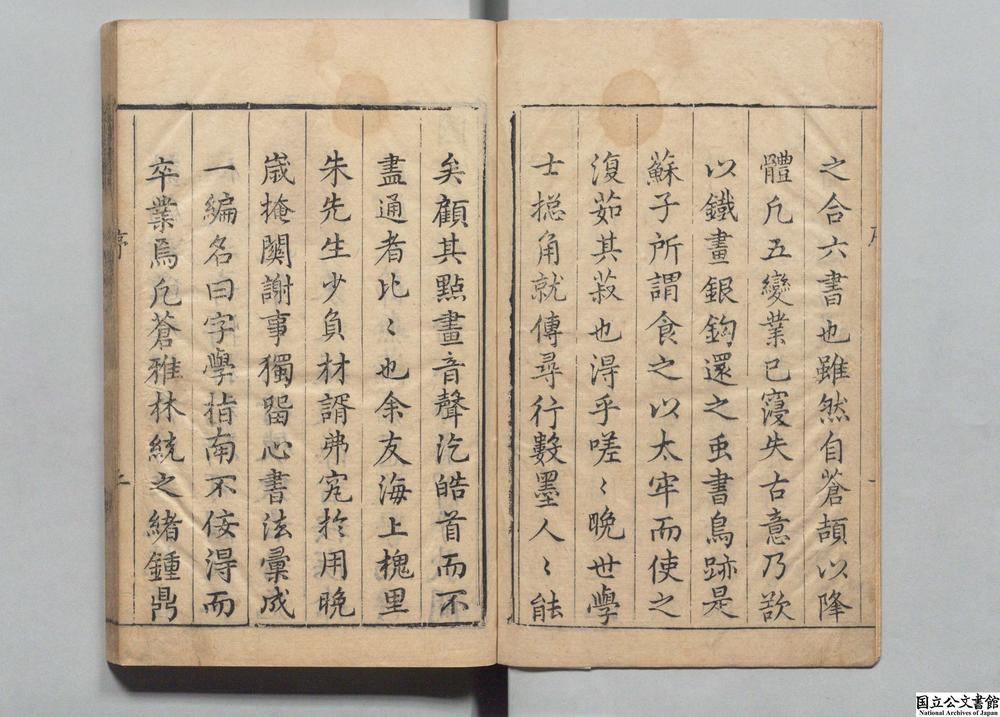 之合六書也雖然自蒼頡以降
體凡五變業已寖失古意乃欲
以鐵畫銀鈎還之虫書鳥跡是
蘇子所謂食之以太牢而使之
復茹其菽也淂乎嗟〻晚世學
士摠角就傳尋行數墨人〻能
矣顧其點畫音聲汔皓首而不
盡通者比〻也余友海上槐里
朱先生少負材諝弗究扵用晚
歲掩關謝事獨畱心書法彙成
一編名曰字學指南不佞淂而
卒業焉凢蒼雅林統之緒鍾鼎
序
国立公文書館
National Archives of Japan